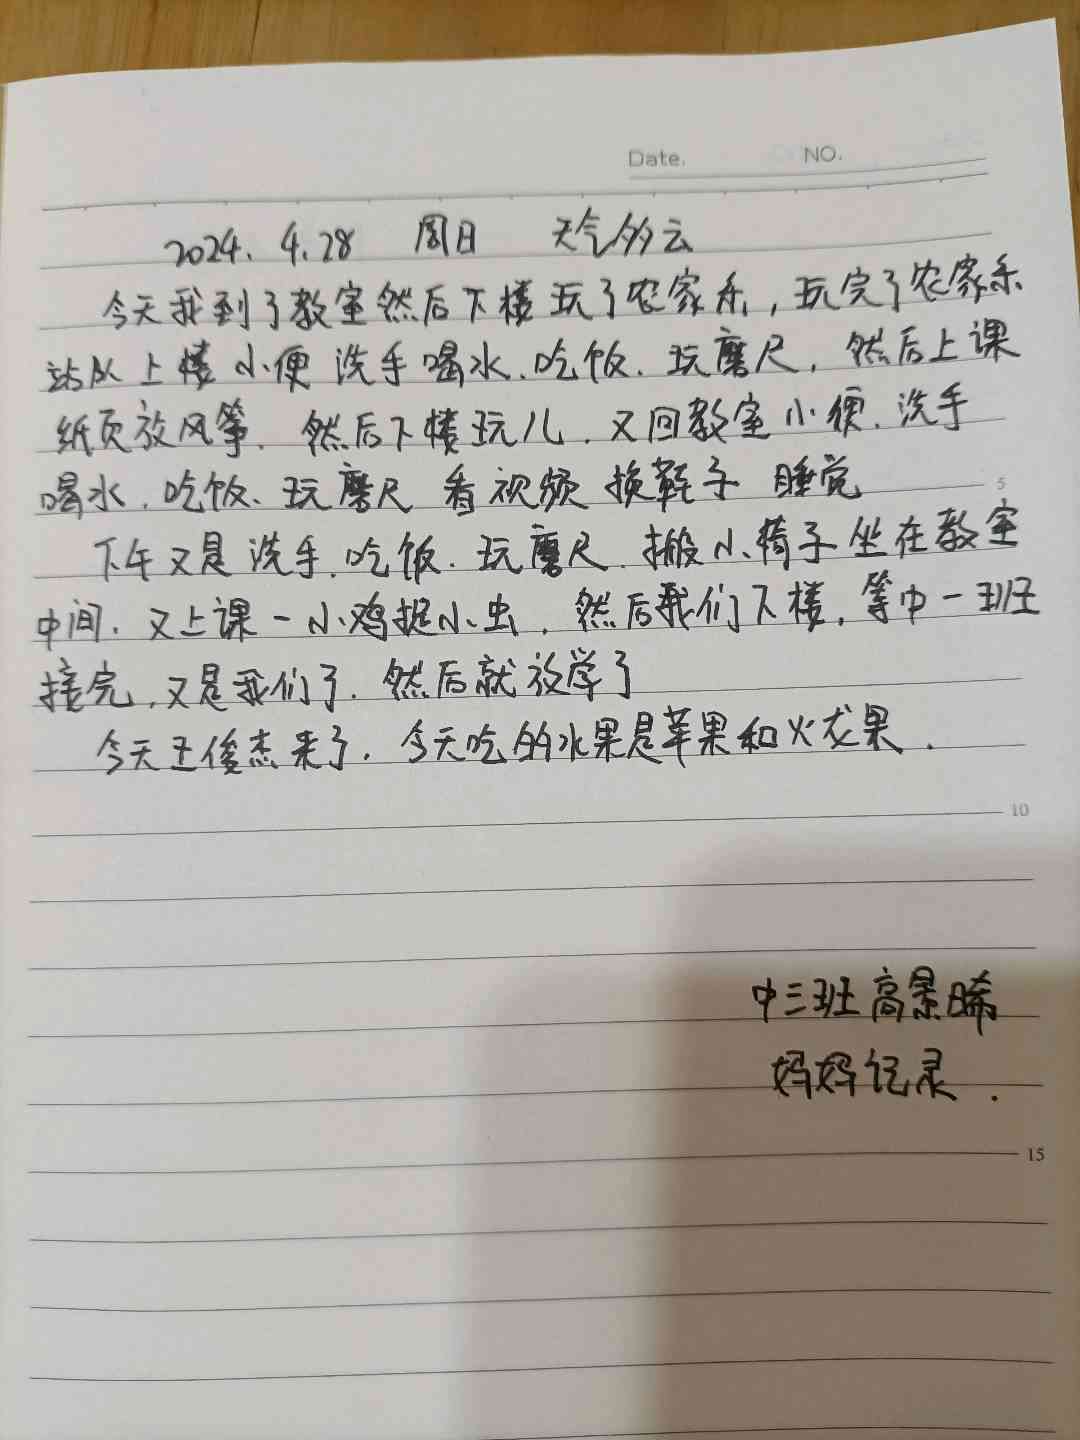 Date. NO.
2024.4.28 周日 天气多云
今天我到了教室然后下楼玩了农家乐，玩完了农家乐
站队上楼小便 洗手喝水、吃饭、玩磨尺，然后上课
纸页放风筝、然后下楼玩儿、又回教室小便、洗手
喝水、吃饭、玩磨尺 看视频 换鞋子 睡觉
5
下午又是洗手、吃饭、玩磨尺、搬小椅子坐在教室
中间、又上课一小鸡捉小虫，然后我们下楼，等中一班
接完，又是我们了、然后就放学了
今天王俊杰来了、今天吃的水果是苹果和火龙果．
10
中三班高景晞
妈妈记录．
15